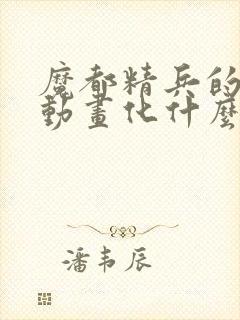 魔都精兵的
動畫化什麼
潘韦辰